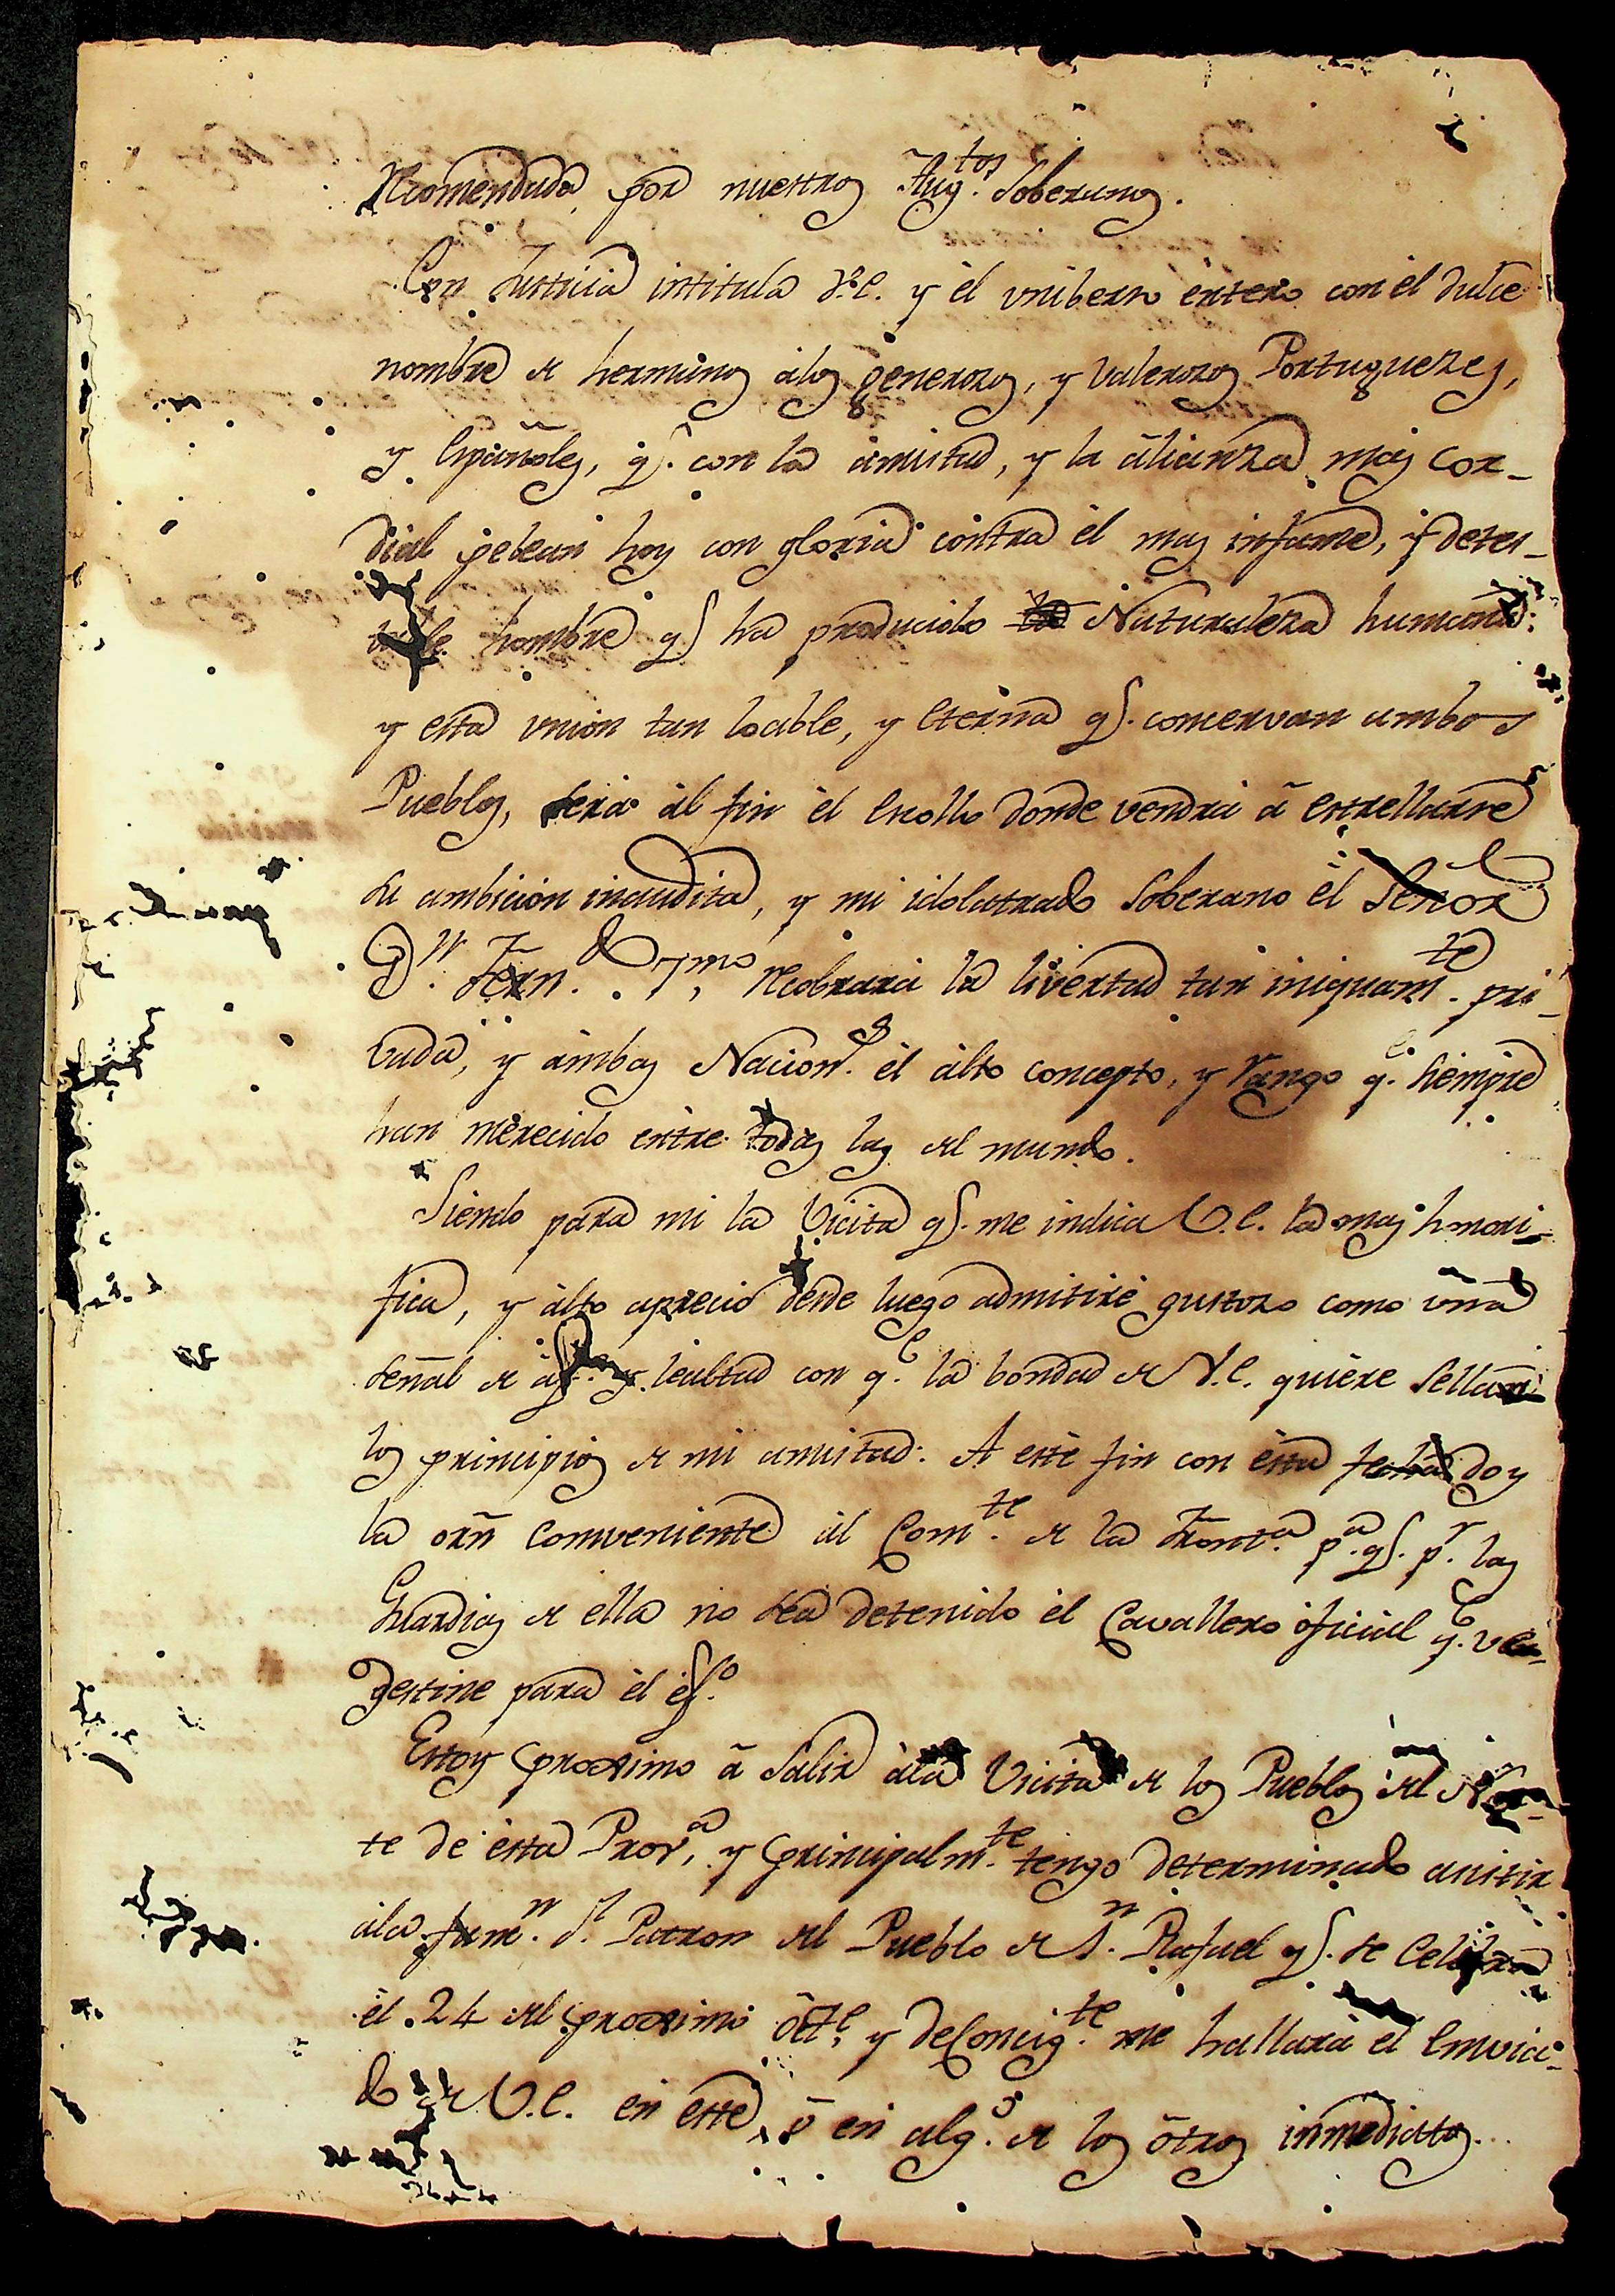 Recomendada por nuestros Aug.tos Soberanos.
Con Justicia intitula V.E. y él vniberso entero con él dulce
nombre de hermanos álos generozos, y valerozos Portuguezes,
y Españoles, q.e con la ámistad, y la álianza mas cor-
dial pelean hoy con gloria contra él mas infame, y detes-
table hombre q.e ha producido la Naturaleza humana:
y esta vnion tan loable, y eterna q.e conservan ambos
Pueblos, será ál fin él escollo donde vendrá á estrellarse
su ambicion inaudita, y mi idolatrado Soberano él Señor
D.n Fern.do 7.mo recobrará la livertad tan iniquam.te pri-
bada, y ámbas Nacion.s él álto concepto, y rango q.e siempre
han merecido entre todas las del mundo.
Siendo para mi la Vicita q.e me indica V.E. la mas honori-
fica, y álto aprecio desde luego admitiré gustozo como vna
señal de y lealtad con q.e la bondad de V.E. quiere Sellar
los principios de mi amistad: A este fin con ésta fecha doy
la orñ conveniente ál Com.te de la Front.a p.a q.e p.r las
Guardias de ella no sea detenido él Cavallero óficial q.e V.E.
destine para él éf.to
Estoy proximo á Salir ála Vicita de los Pueblos del Nor-
te de ésta Prov.a, y principalm.te tengo determinado acistir
ála fum.n d.l Patron del Pueblo de S.n Rafael q.e se Celebra
él 24 del proximo Oct.e, y deConcig.te me hallará él Envia-
do de V.E. en este, ó en alg.o de los ótros inmediatos.